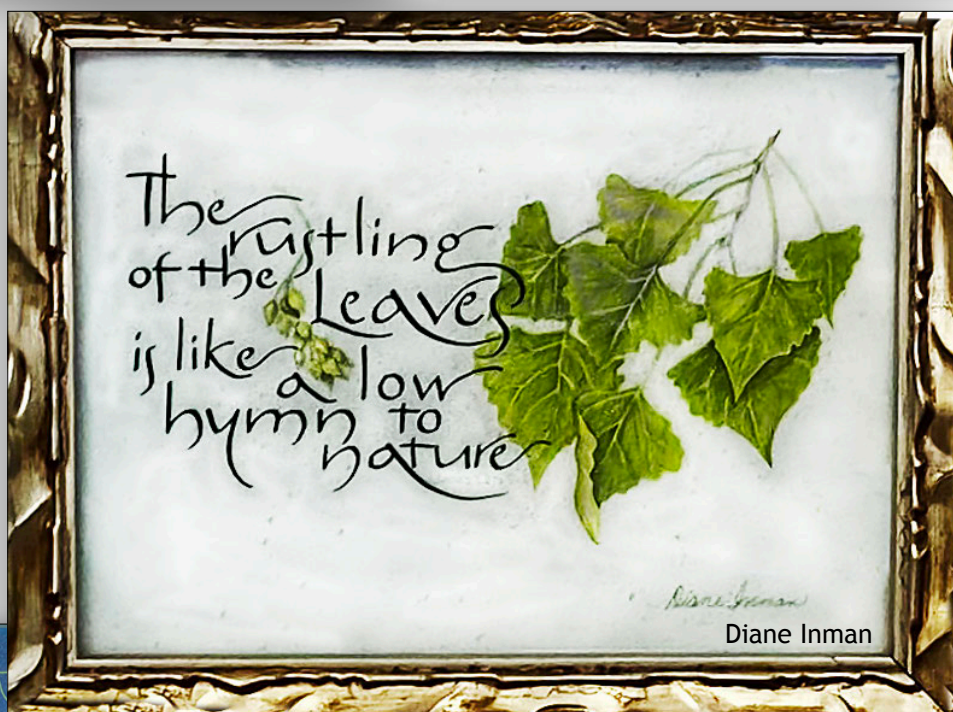 The
rustling
of the Leaves
is like
a low
hymn to
nature
Diane Inman
Diane Inman